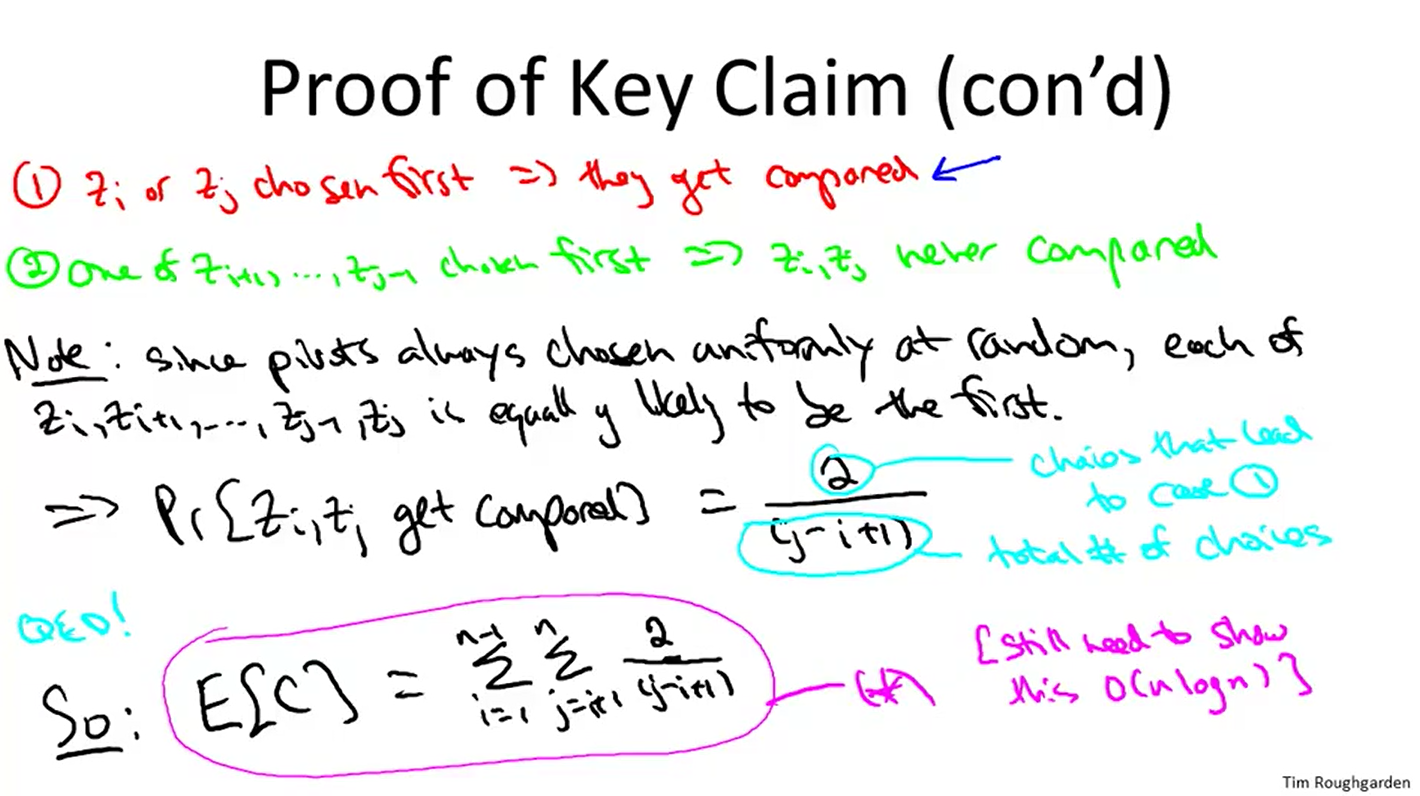 Proof of Key Claim (con'd)
① z_i or z_j chosen first => they get compared
② one of z_{i+1}, ..., z_{j-1} chosen first => z_i, z_j never compared
Note: since pivots always chosen uniformly at random, each of
z_i, z_{i+1}, ..., z_{j-1}, z_j is equally likely to be the first.
=> Pr[z_i, z_j get compared] = 2/(j-i+1)
choices that lead
to case ①
total # of choices
QED!
So: E[C] = \sum_{i=1}^{n-1} \sum_{j=i+1}^{n} 2/(j-i+1) (*)
[still need to show
this O(n log n)]
Tim Roughgarden